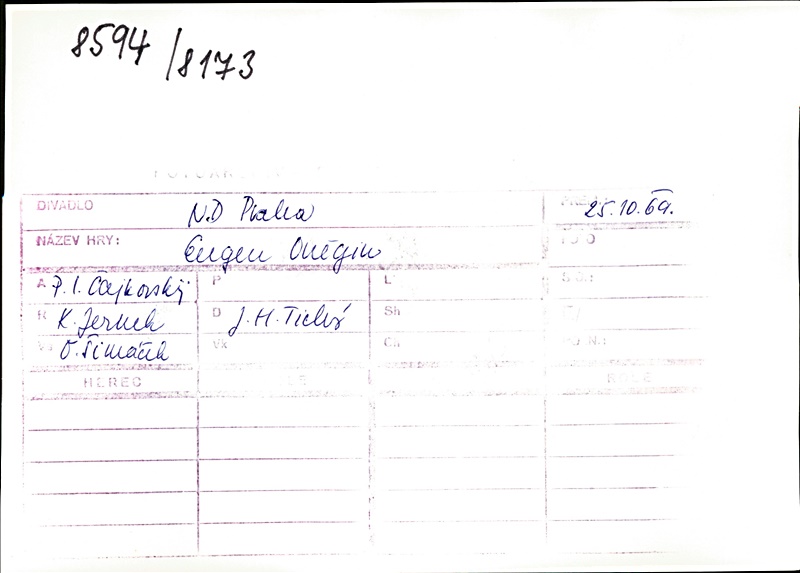 8594/8173
DIVADLO N.D Praha 25.10.69.
NÁZEV HRY: Eugen Oněgin
A P.I. Čajkovskij P L
R K. Jernek D J.H. Tichý Sh
O. Šimáček Vk Ch
HEREC ROLE